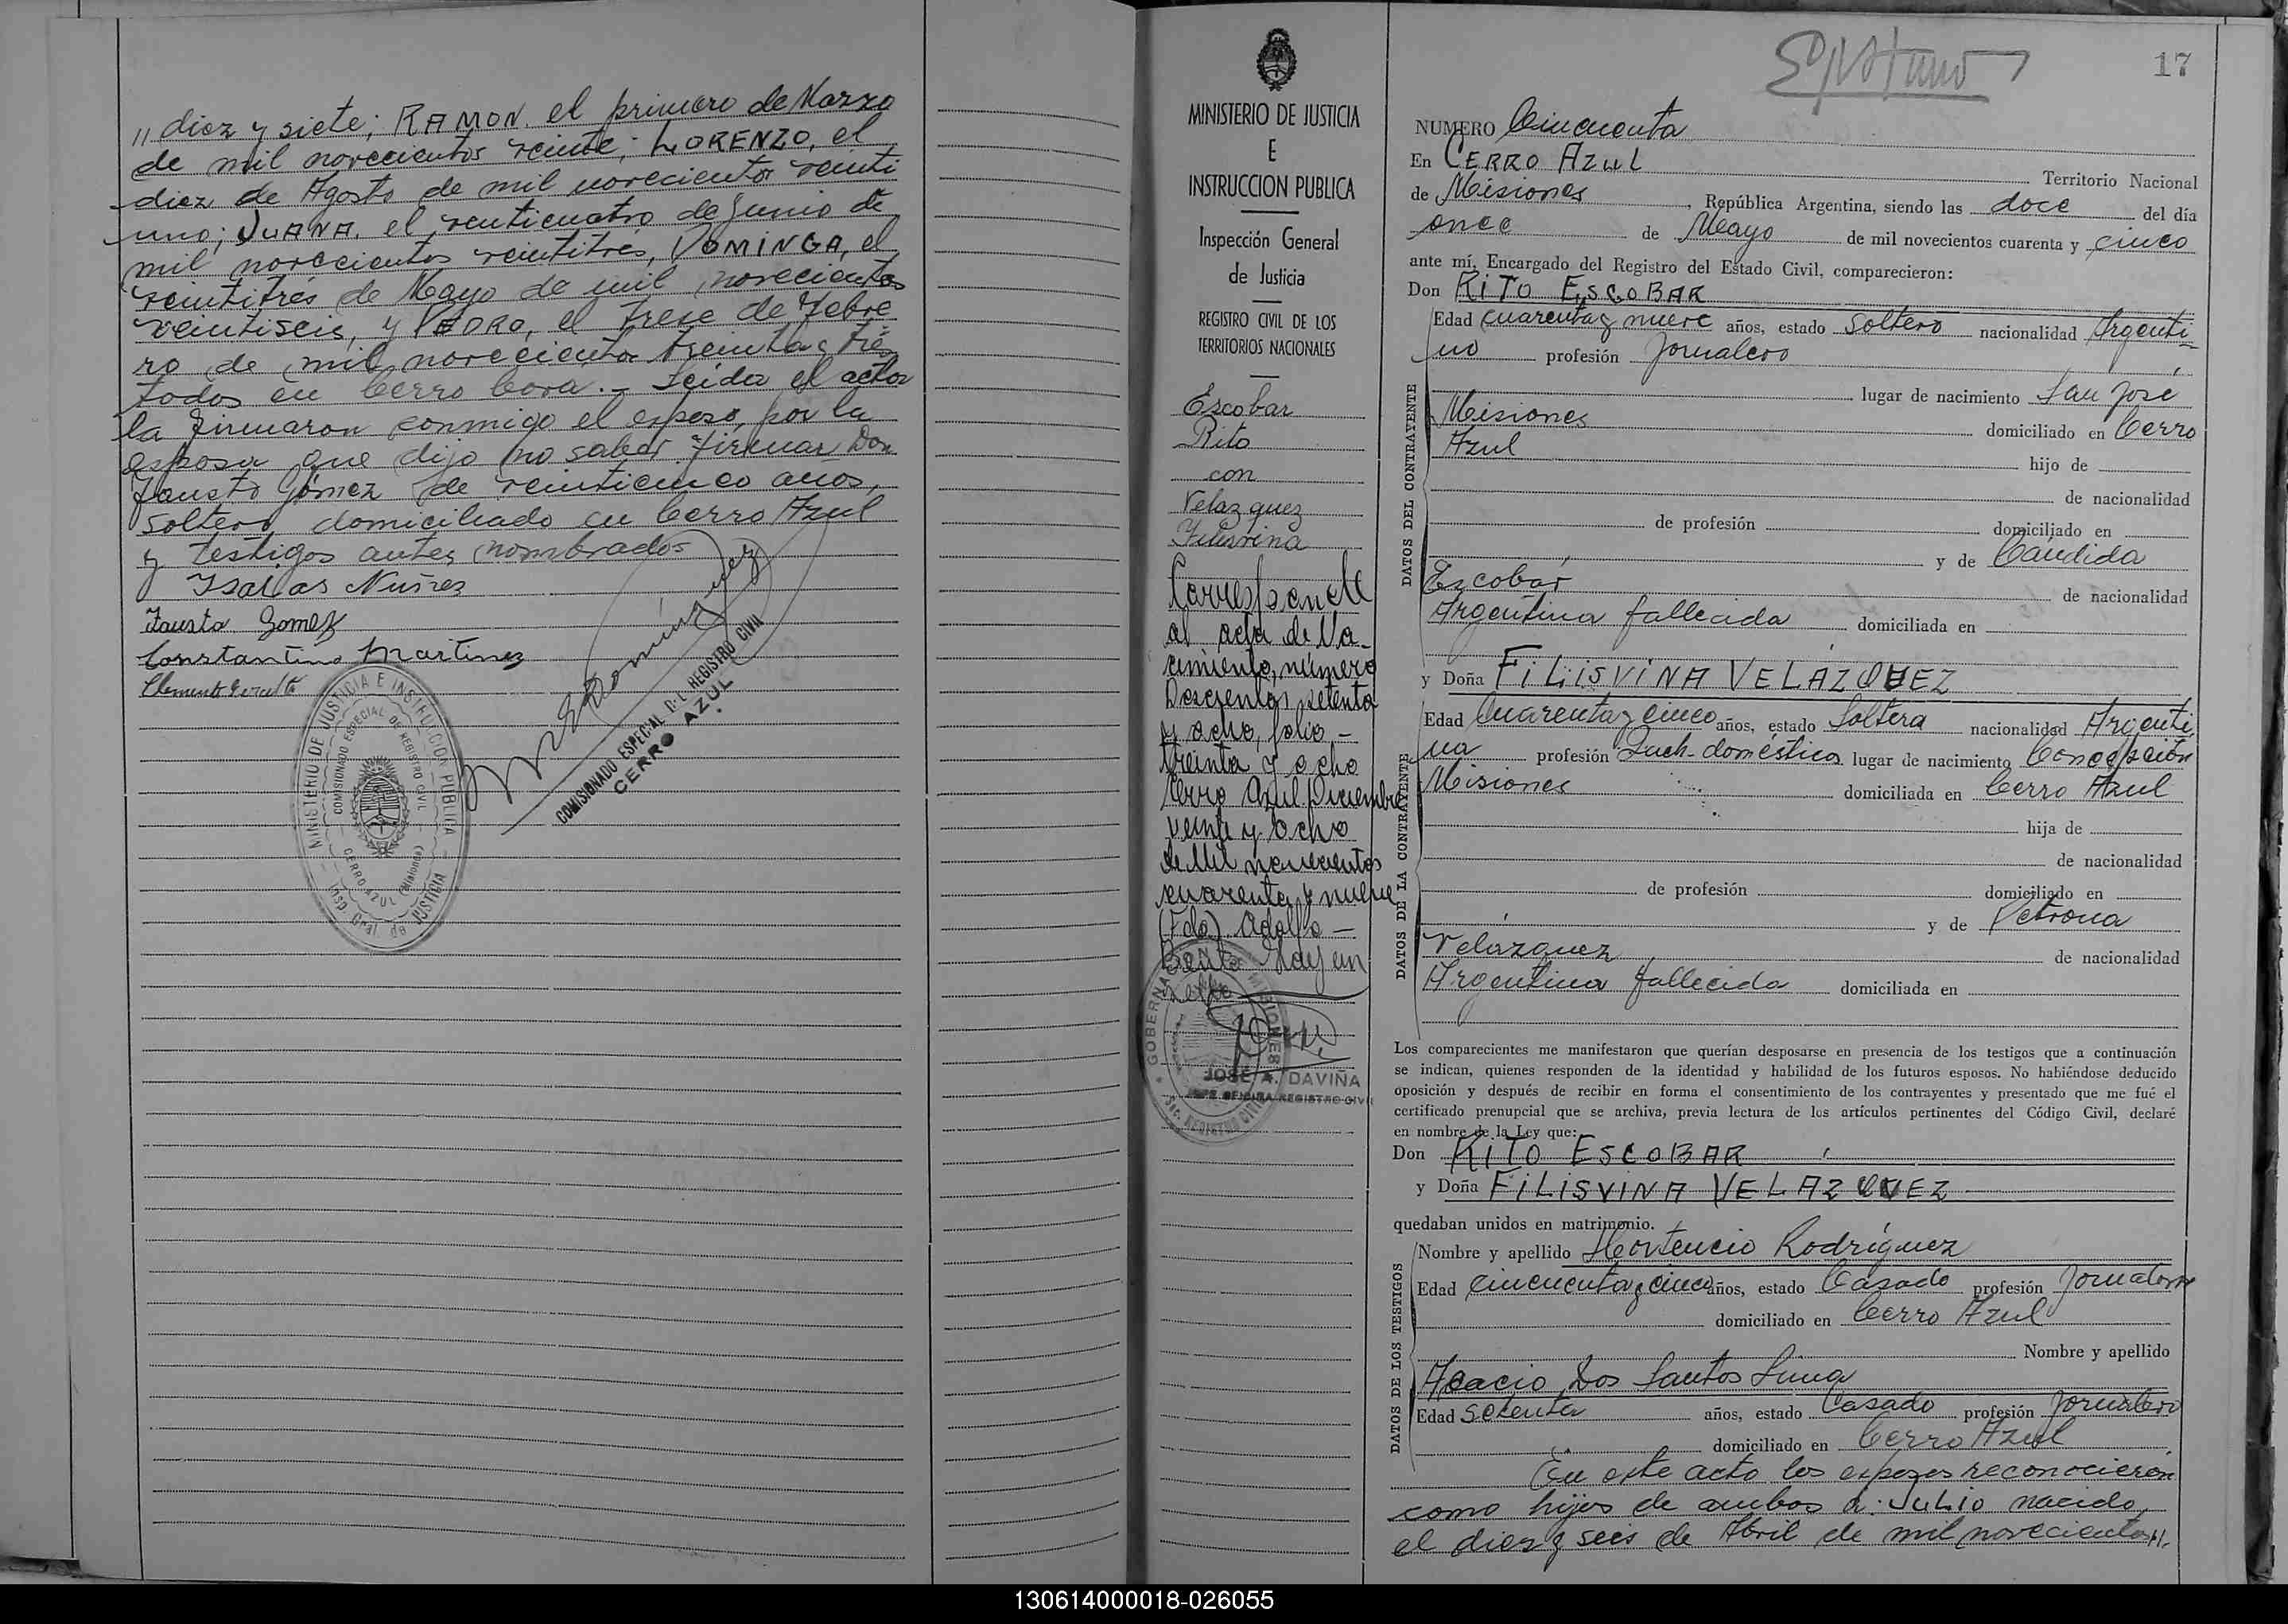 " diez y siete; RAMON, el primero de Marzo
de mil novecientos veinte; LORENZO, el
diez de Agosto de mil novecientos veinti
uno; JUANA, el venticuatro de Junio de
mil novecientos veintitrés, DOMINGA, el
veintitrés de Mayo de mil novecientos
veintiseis, y PEDRO, el trece de Febre
ro de mil novecientos treinta y tres
todos en Cerro Corá.- Leida el acta
la firmaron conmigo el esposo, por la
esposa que dijo no saber firmar Don
Fausto Gómez de veinticinco años,
soltero, domiciliado en Cerro Azul
y testigos antes nombrados
Isaias Nuñez
Fausto Gomez
Constantino Martinez
Clemente
MINISTERIO DE JUSTICIA E INSTRUCCION PUBLICA
COMISIONADO ESPECIAL DE REGISTRO CIVIL
CERRO AZUL (Misiones)
Insp. Gral. de JUSTICIA
COMISIONADO ESPECIAL DEL REGISTRO CIVIL
CERRO AZUL
MINISTERIO DE JUSTICIA
E
INSTRUCCION PUBLICA
Inspección General
de Justicia
REGISTRO CIVIL DE LOS
TERRITORIOS NACIONALES
Escobar
Rito
con
Velazquez
Filisvina
Corresponde
al acta de Na-
cimiento, número
Doscientos setenta
y ocho, folio -
treinta y ocho
Cerro Azul Diciembre
veinte y ocho
de Mil novecientos
cuarenta y nueve
(Fdo) Adolfo -
JOSÉ A. DAVIÑA
JEFE OFICINA REGISTRO CIVIL
17
NUMERO Cincuenta
En CERRO AZUL Territorio Nacional
de Misiones, República Argentina, siendo las doce del día
once de Mayo de mil novecientos cuarenta y cinco
ante mí, Encargado del Registro del Estado Civil, comparecieron:
Don RITO ESCOBAR
DATOS DEL CONTRAYENTE
Edad cuarenta y nueve años, estado Soltero nacionalidad Argenti-
no profesión Jornalero
lugar de nacimiento San José
Misiones domiciliado en Cerro
Azul hijo de
de nacionalidad
de profesión domiciliado en
y de Cándida
Escobar de nacionalidad
Argentina fallecida domiciliada en
y Doña FILISVINA VELAZQUEZ
DATOS DE LA CONTRAYENTE
Edad Cuarenta y cinco años, estado Soltera nacionalidad Argenti
na profesión Queh. domésticos lugar de nacimiento Concepción
Misiones domiciliada en Cerro Azul
hija de
de nacionalidad
de profesión domiciliado en
y de Petrona
Velázquez de nacionalidad
Argentina fallecida domiciliada en
Los comparecientes me manifestaron que querían desposarse en presencia de los testigos que a continuación
se indican, quienes responden de la identidad y habilidad de los futuros esposos. No habiéndose deducido
oposición y después de recibir en forma el consentimiento de los contrayentes y presentado que me fué el
certificado prenupcial que se archiva, previa lectura de los artículos pertinentes del Código Civil, declaré
en nombre de la Ley que:
Don RITO ESCOBAR
y Doña FILISVINA VELAZQUEZ
quedaban unidos en matrimonio.
DATOS DE LOS TESTIGOS
Nombre y apellido Hortencio Rodríguez
Edad cincuenta y cinco años, estado Casado profesión Jornalero
domiciliado en Cerro Azul
Nombre y apellido
Acacio Dos Santos Lima
Edad setenta años, estado Casado profesión Jornalero
domiciliado en Cerro Azul
En este acto los esposos reconocieron
como hijos de ambos a: JULIO nacido
el diez y seis de Abril de mil novecientos //-
130614000018-026055